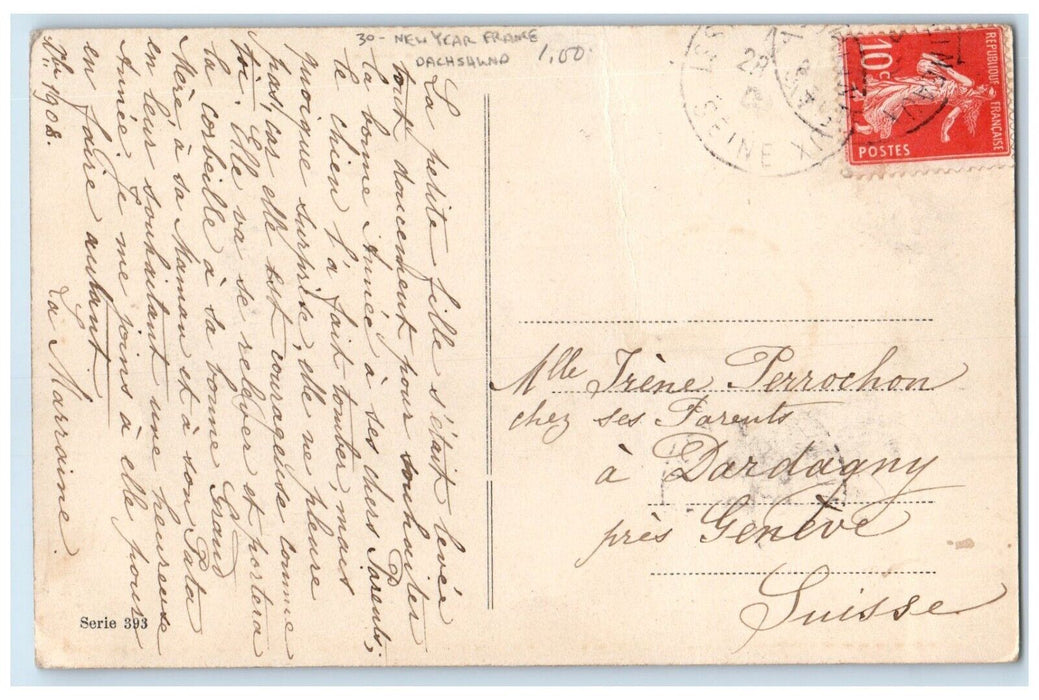 30- NEW YEAR FRANCE
DACHSHUND 1.00
La petite fille s'était levée
tout doucement pour souhaiter
la bonne Année à ses chers Parents;
le chien l'a fait tomber, mais
quoique surprise, elle ne pleure
pas, car elle est courageuse comme
toi. Elle va se relever et portera
la corbeille à sa bonne Grand
Mère, à sa Maman et à son Papa
en leur souhaitant une heureuse
Année. Je me joins à elle pour
en faire autant.
La Marraine.
1908.
Serie 393
SEINE
28
REPUBLIQUE FRANÇAISE
10c
POSTES
Mlle Irène Perrochon
chez ses Parents
à Dardagny
près Genève
Suisse